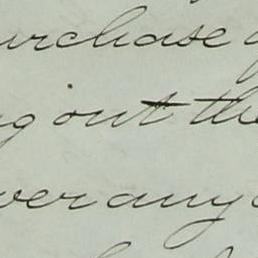 urchase
g out the
ver any